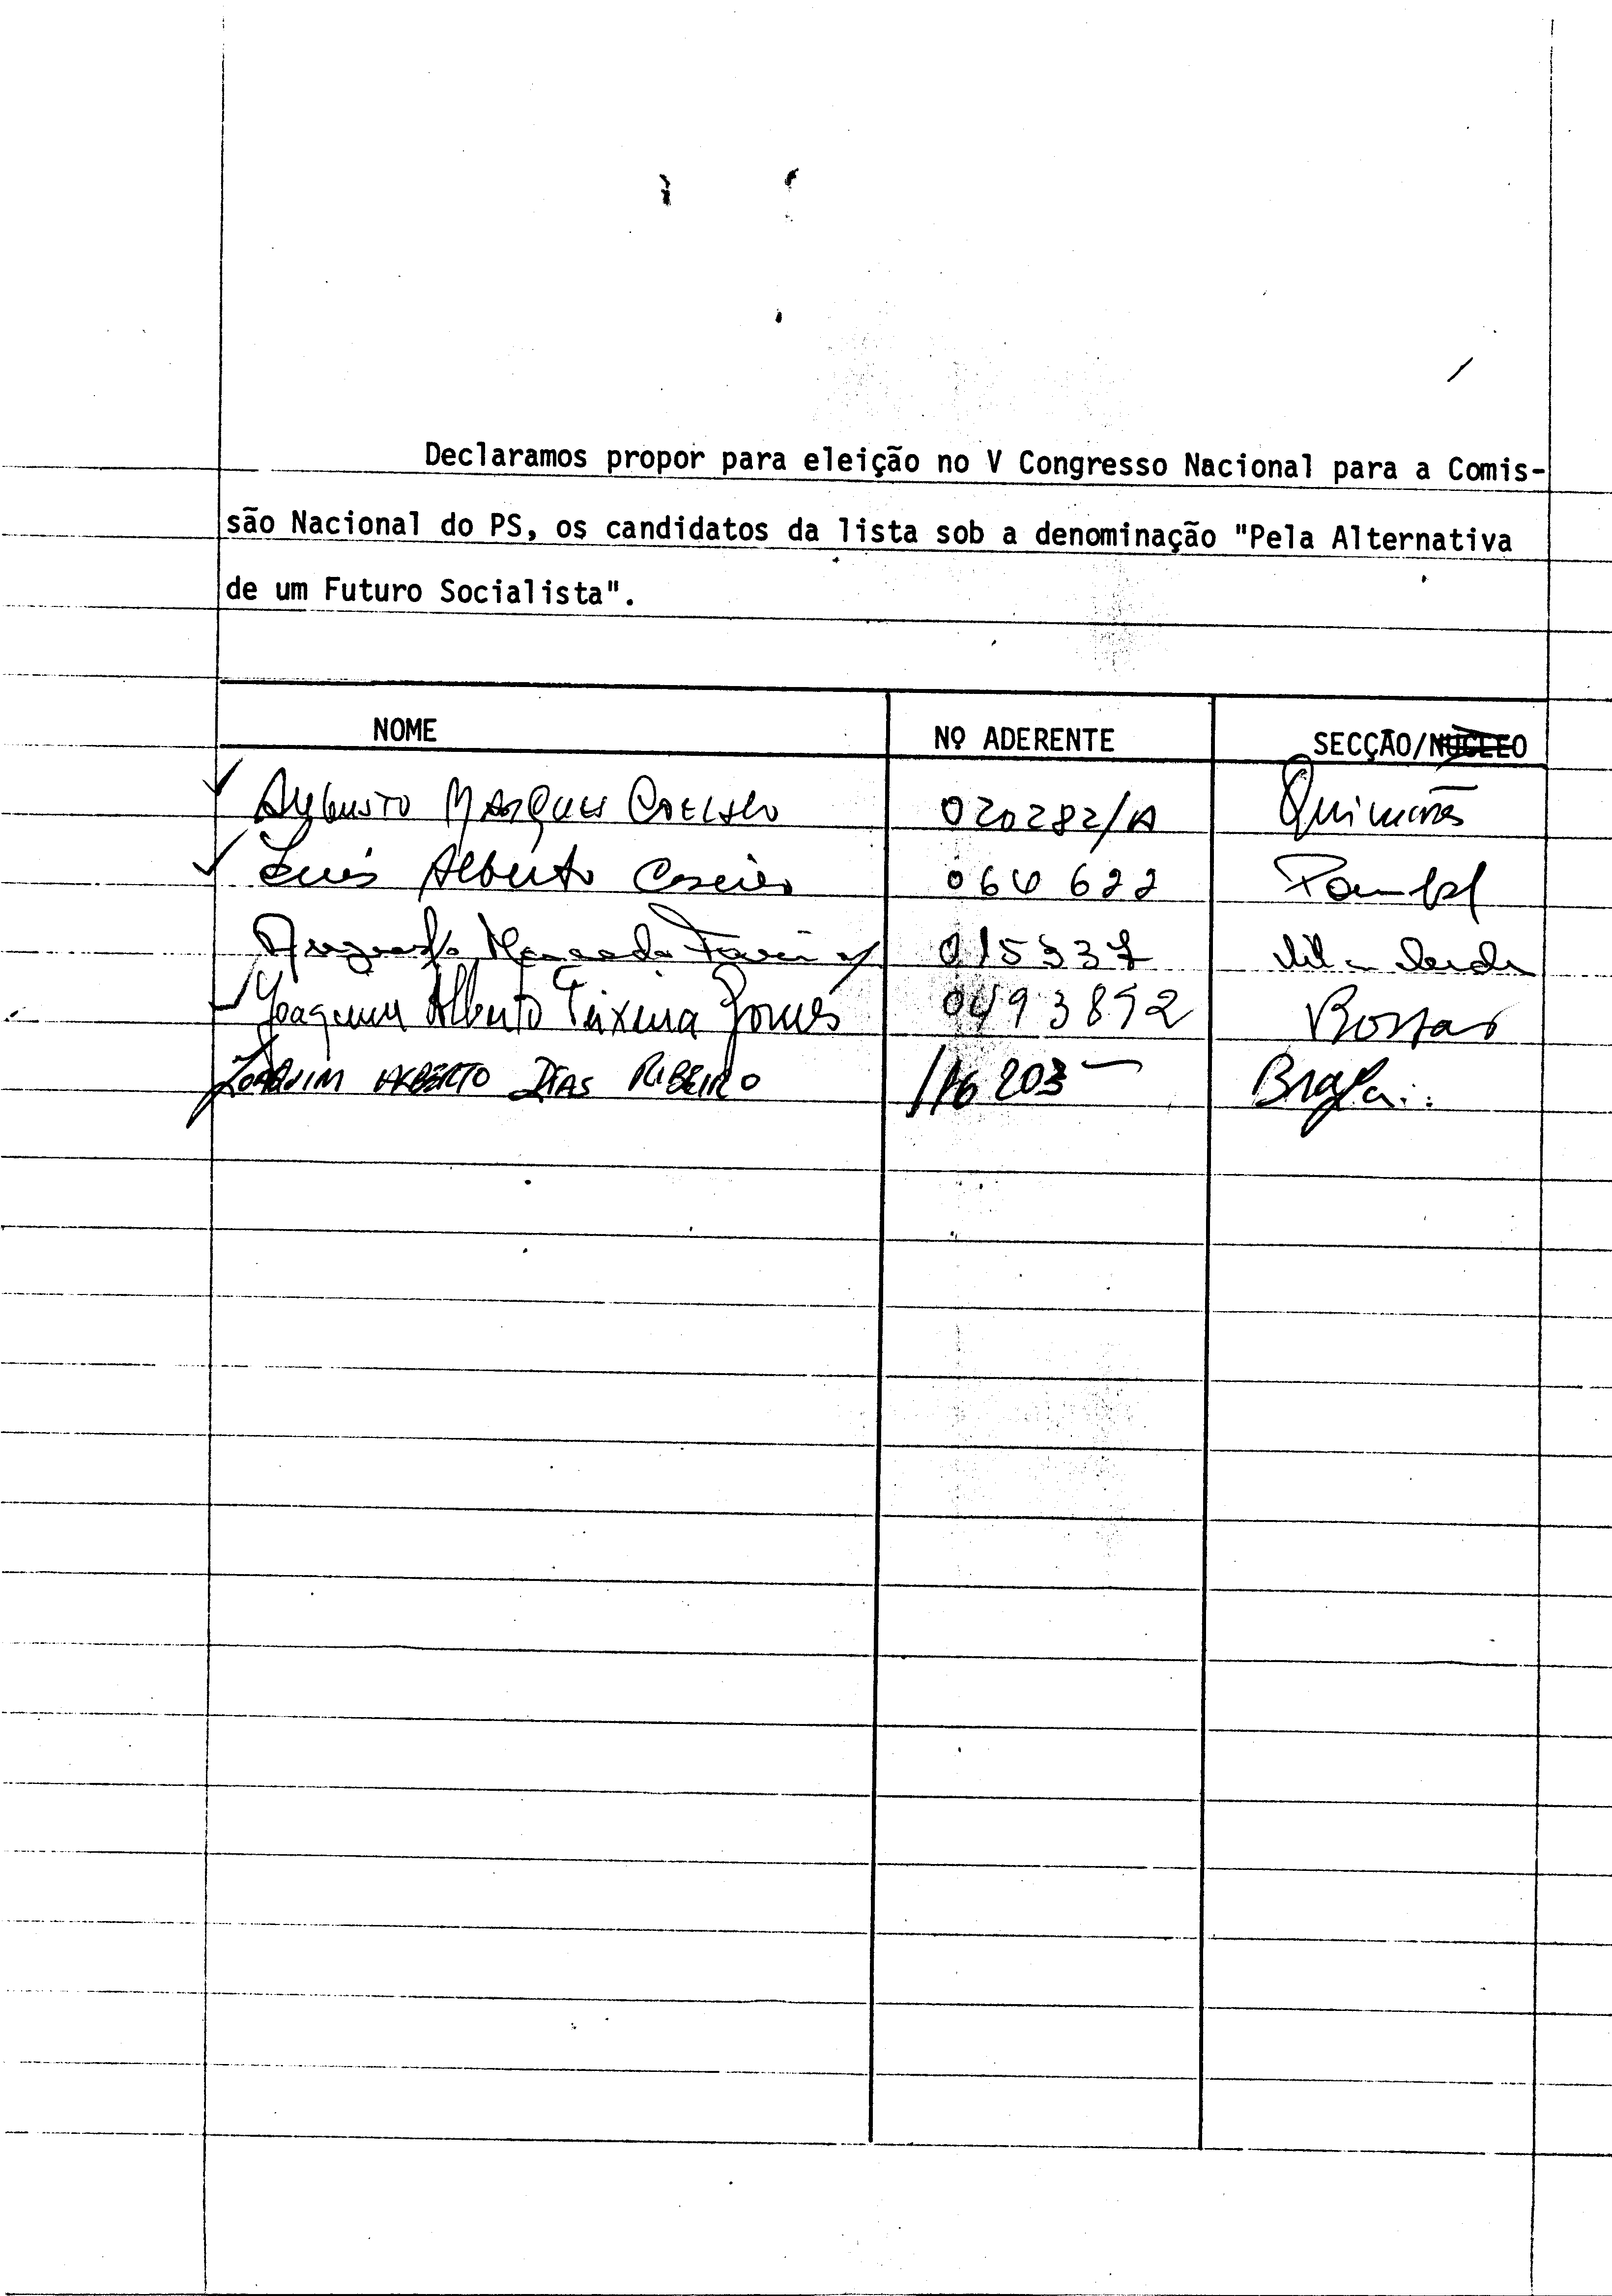 Declaramos propor para eleição no V Congresso Nacional para a Comis-
são Nacional do PS, os candidatos da lista sob a denominação "Pela Alternativa
de um Futuro Socialista".
NOME Nº ADERENTE SECÇÃO/NÚCLEO
Augusto MARQUES COELHO 020282/A
Luís Alberto 064622
015337
Joaquim Alberto Teixeira Gomes 0493892
JOAQUIM ALBERTO DIAS RIBEIRO 116203 Braga